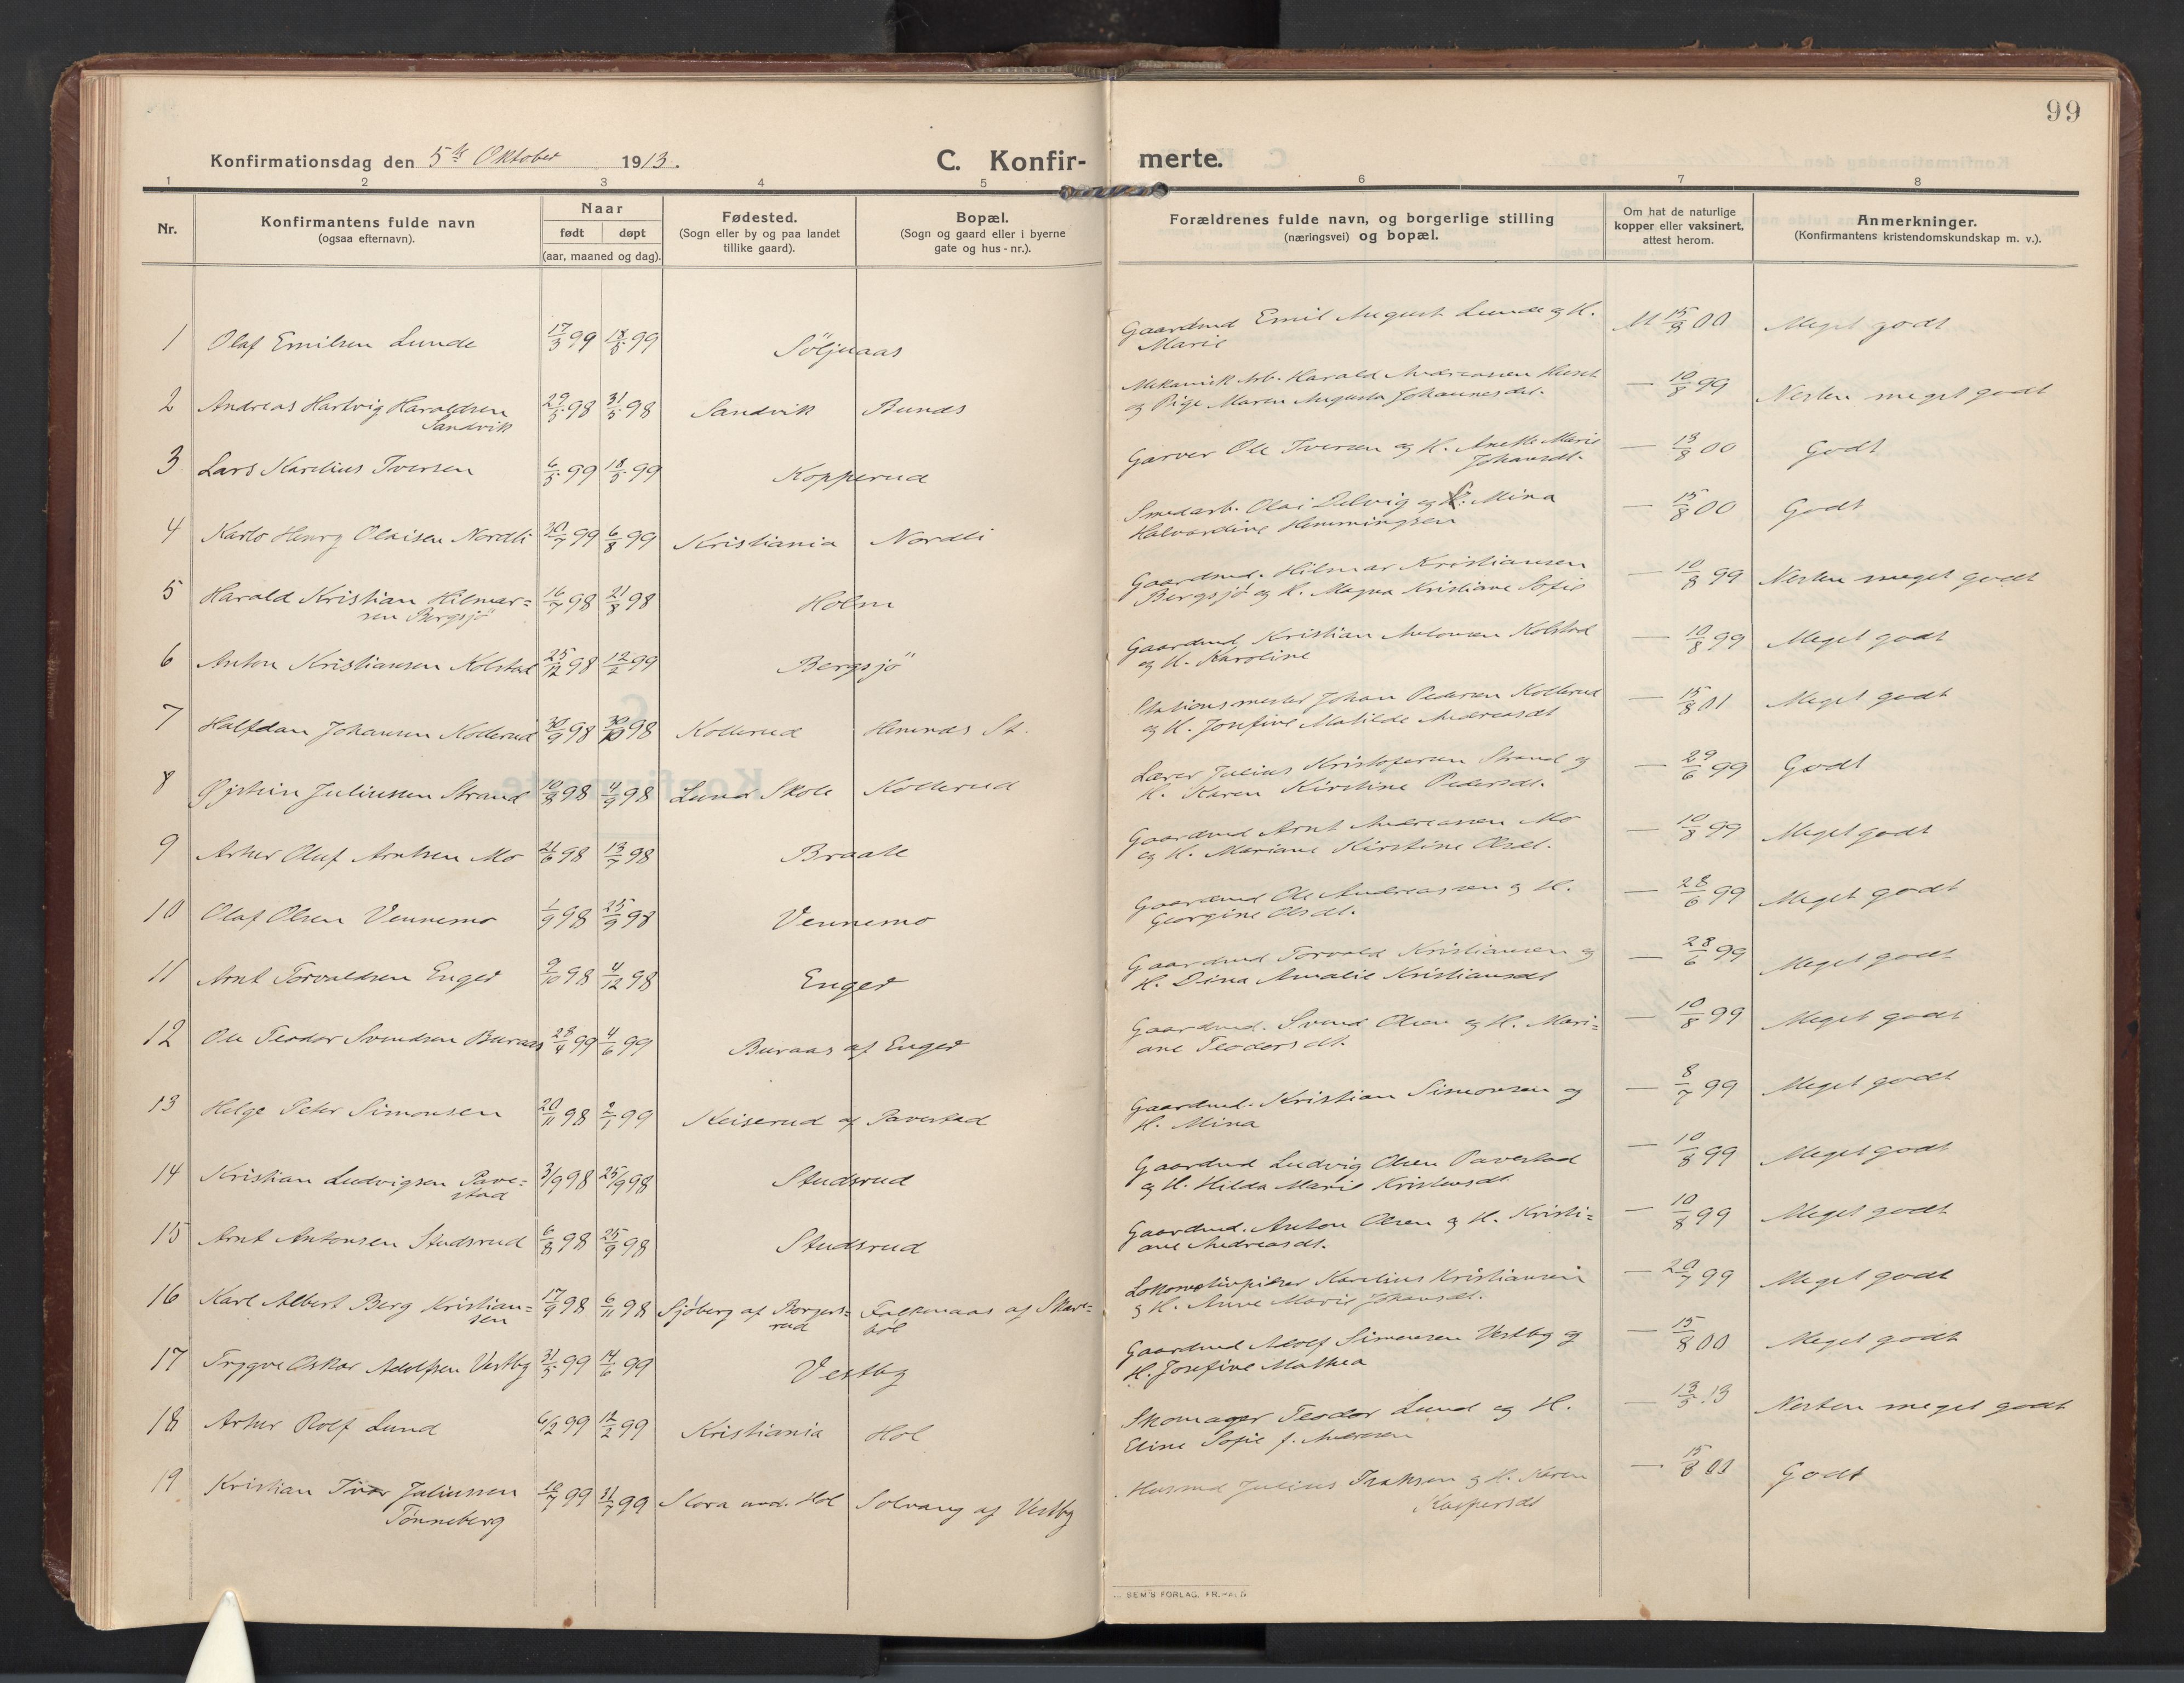 99
Konfirmationsdag den 5te Oktober 1913.
C. Konfir-
merte.
1 2 3 4 5 6 7 8
Nr.
Konfirmantens fulde navn
(ogsaa efternavn).
Naar
født døpt
(aar, maaned og dag).
Fødested.
(Sogn eller by og paa landet
tillike gaard).
Bopæl.
(Sogn og gaard eller i byerne
gate og hus - nr.).
Forældrenes fulde navn, og borgerlige stilling
(næringsvei) og bopæl.
Om hat de naturlige
kopper eller vaksinert,
attest herom.
Anmerkninger.
(Konfirmantens kristendomskundskap m. v.).
1 Olaf Emilsen Lunde 17/3 99 18/5 99 Söljuaas Gaardmd Emil August Lunde og H. M 15/8 00 Meget godt
Marie
2 Andreas Hartvig Haraldsen 29/5 98 31/5 98 Sandvik Bunds Mekanisk Arb. Harald Andreassen — 10/8 99 Nesten meget godt
Sandvik og Pige Maren Augusta Johannesdt.
3 Lars Karelius Iversen 6/5 99 18/5 99 Kopperud Garver Ole Iversen og H. Anette Marie — 13/8 00 Godt
Johansdt.
4 Karlo Henry Olaisen Nordli 30/7 99 6/8 99 Kristiania Nordli Smedarb. Olai Delvig og Mina — 15/8 00 Godt
Halvardine Hemmingsen
5 Harald Kristian Hilmar= 16/7 98 21/8 98 Holm Gaardmd. Hilmar Kristiansen — 10/8 99 Nesten meget godt
sen Bergsjö Bergsjö og H. Magna Kristiane Sofie
6 Anton Kristiansen Kolstad 25/12 98 12/2 99 Bergsjö Gaardmd Kristian Antonsen Kolstad — 10/8 99 Meget godt
og H. Karoline
7 Halfdan Johansen Kollerud 30/9 98 30/10 98 Kollerud Hemnes St. Stationsmester Johan Pedersen Kollerud — 15/8 01 Meget godt
og H. Josefine Matilde Andreasdt
8 Øistein Juliussen Strand 10/8 98 4/9 98 Lund Skole Kollerud Lærer Julius Kristofersen Strand og — 29/6 99 Godt
H. Karen Kirstine Pedersdt.
9 Artur Oluf Arntsen Mo 21/6 98 13/7 98 Braate Gaardmd Arnt Andreassen Mo — 10/8 99 Meget godt
og H. Mariane Kirstine Olsdt.
10 Olaf Olsen Vennemo 1/9 98 25/9 98 Vennemo Gaardmd Ole Andreassen og H. — 28/6 99 Meget godt
Georgine Olsdt.
11 Arnt Torvaldsen Enger 9/10 98 4/12 98 Enger Gaardmd Torvald Kristiansen og — 28/6 99 Meget godt
H. Dina Amalie Kristiansdt
12 Ole Teodor Svendsen Buraas 28/4 99 4/6 99 Buraas af Enger Gaardmd. Svend Olsen og H. Mari= — 10/8 99 Meget godt
ane Teodorsdt.
13 Helge Peter Simonsen 20/11 98 2/1 99 Keiserud af Paverstad Gaardmd. Kristian Simonsen og — 8/7 99 Meget godt
H. Mina
14 Kristian Ludvigsen Pave= 3/9 98 25/9 98 Studsrud Gaardmd Ludvig Olsen Paverstad — 10/8 99 Meget godt
stad og H. Hilda Marie Kristensdt
15 Arnt Antonsen Studsrud 6/8 98 25/9 98 Studsrud Gaardmd. Anton Olsen og H. Kristi= — 10/8 99 Meget godt
ane Andreasdt.
16 Karl Albert Berg Kristian= 17/9 98 6/11 98 Sjöberg af Borgers= Falkenaas af Skare= Lokomotivpudser Karelius Kristiansen — 20/7 99 Meget godt
sen rud böl og H. Anne Marie Johansdt.
17 Trygve Oskar Adolfsen Vestby 31/5 99 14/6 99 Vestby Gaardmd Adolf Simensen Vestby og — 15/8 00 Meget godt
H. Josefine Mathea
18 Artur Rolf Lund 6/2 99 12/2 99 Kristiania Hol Skomager Teodor Lund og H. — 13/5 13 Nesten meget godt
Eline Sofie f. Andersen
19 Kristian Ivar Juliussen 16/7 99 31/7 99 Skora und. Hol Solvang af Vestby Husmd Julius Isaksen og H. Karen — 15/8 01 Godt
Tønneberg Kaspersdt
SEM'S FORLAG, FR.HALD